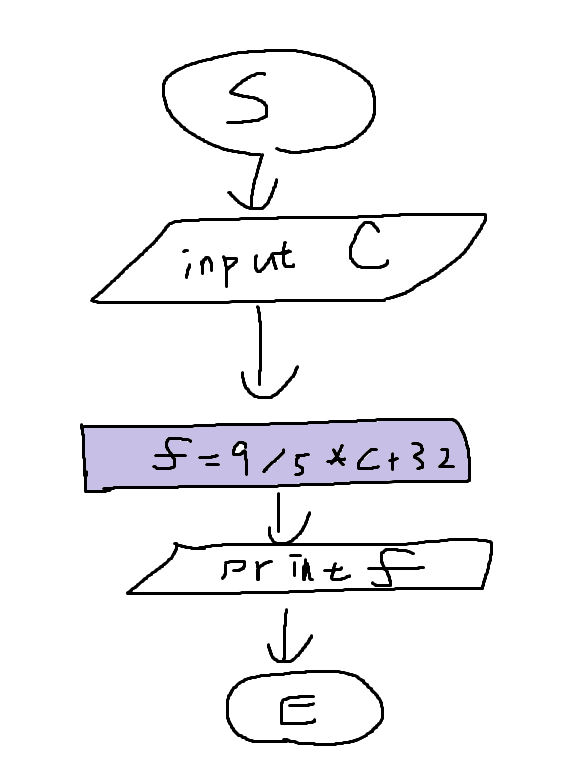 S
input C
f = 9 / 5 * c + 32
print f
E